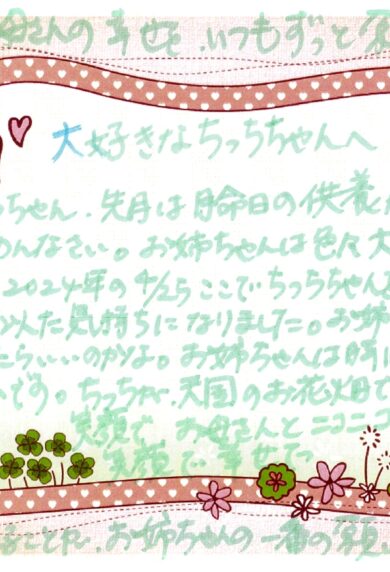 母さんの幸せを、いつもずっと
大好きなちっちちゃんへ
っちゃん、先月は月命日の供養
めんなさい。お姉ちゃんは色々大
2024年の4/25ここでちっちちゃん
気持ちになりました。お姉
たらいいのかよ。お姉ちゃんは
です。ちっちが、天国のお花畑で
笑顔で お母さんとニコニコ
笑顔で幸せで
ことだ、お姉ちゃんの一番の